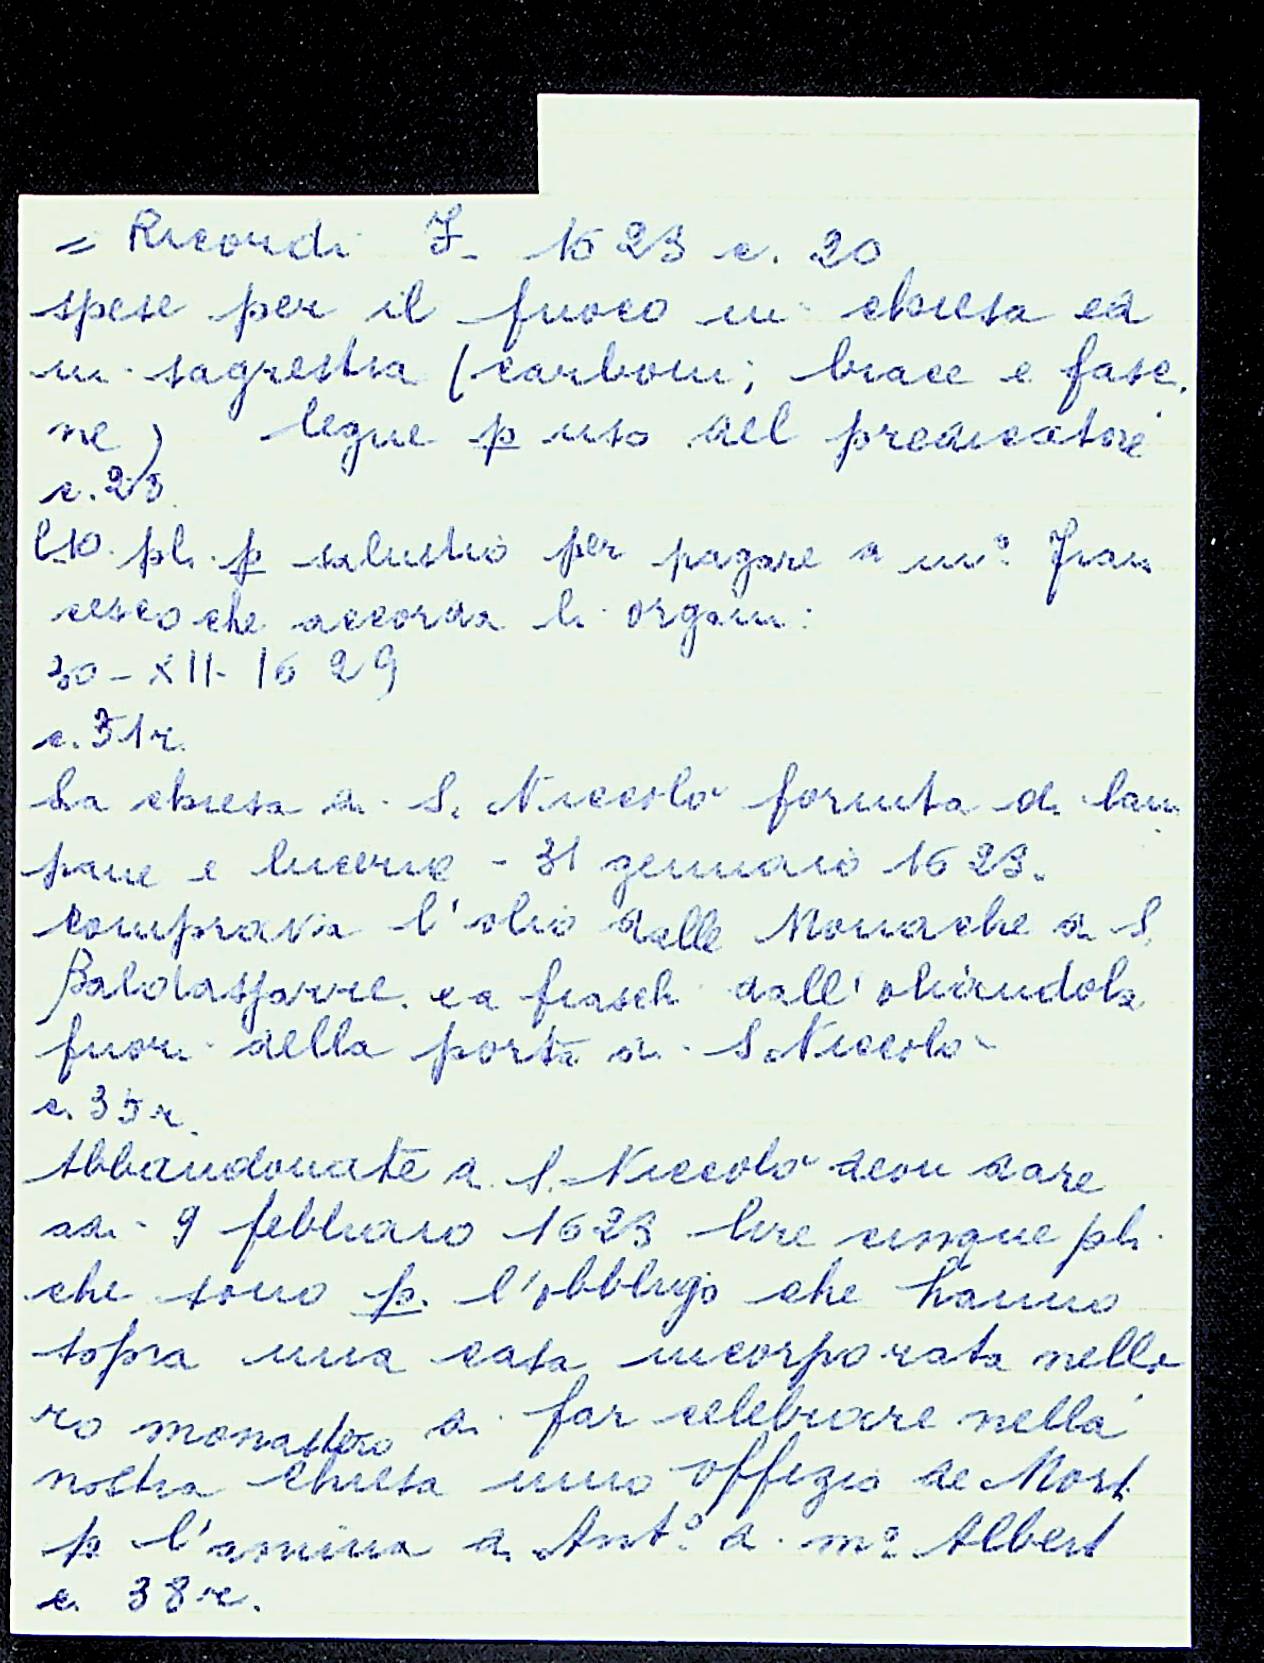 = Ricordi J. 1623 c. 20
spese per il fuoco in chiesa ed
in sagrestia (carboni; brace e fasc.
ne) legne p uso del predicatore
c. 25
£10. pl. p salustio per pagare a mº Fran
cesco che accorda li organi:
30-XII-1629
c. 31r.
La chiesa di S. Niccolò fornita di lam
pane e lucerne - 31 gennaio 1623.
comprava l'olio dalle Monache di S.
Baldassarre. ed a fiaschi dall'oliandolo
fuori della porta di S. Niccolò
c. 35r.
Abbandonate di S. Niccolò deon dare
adi 9 febbraio 1623 lire cinque pli
che sono p. l'obbligo che hanno
sopra una casa incorporata nello
ro monastero di far celebrare nella
nostra Chiesa uno offizio de Morti
p l'anima di Antº di mº Alberti
c. 38r.